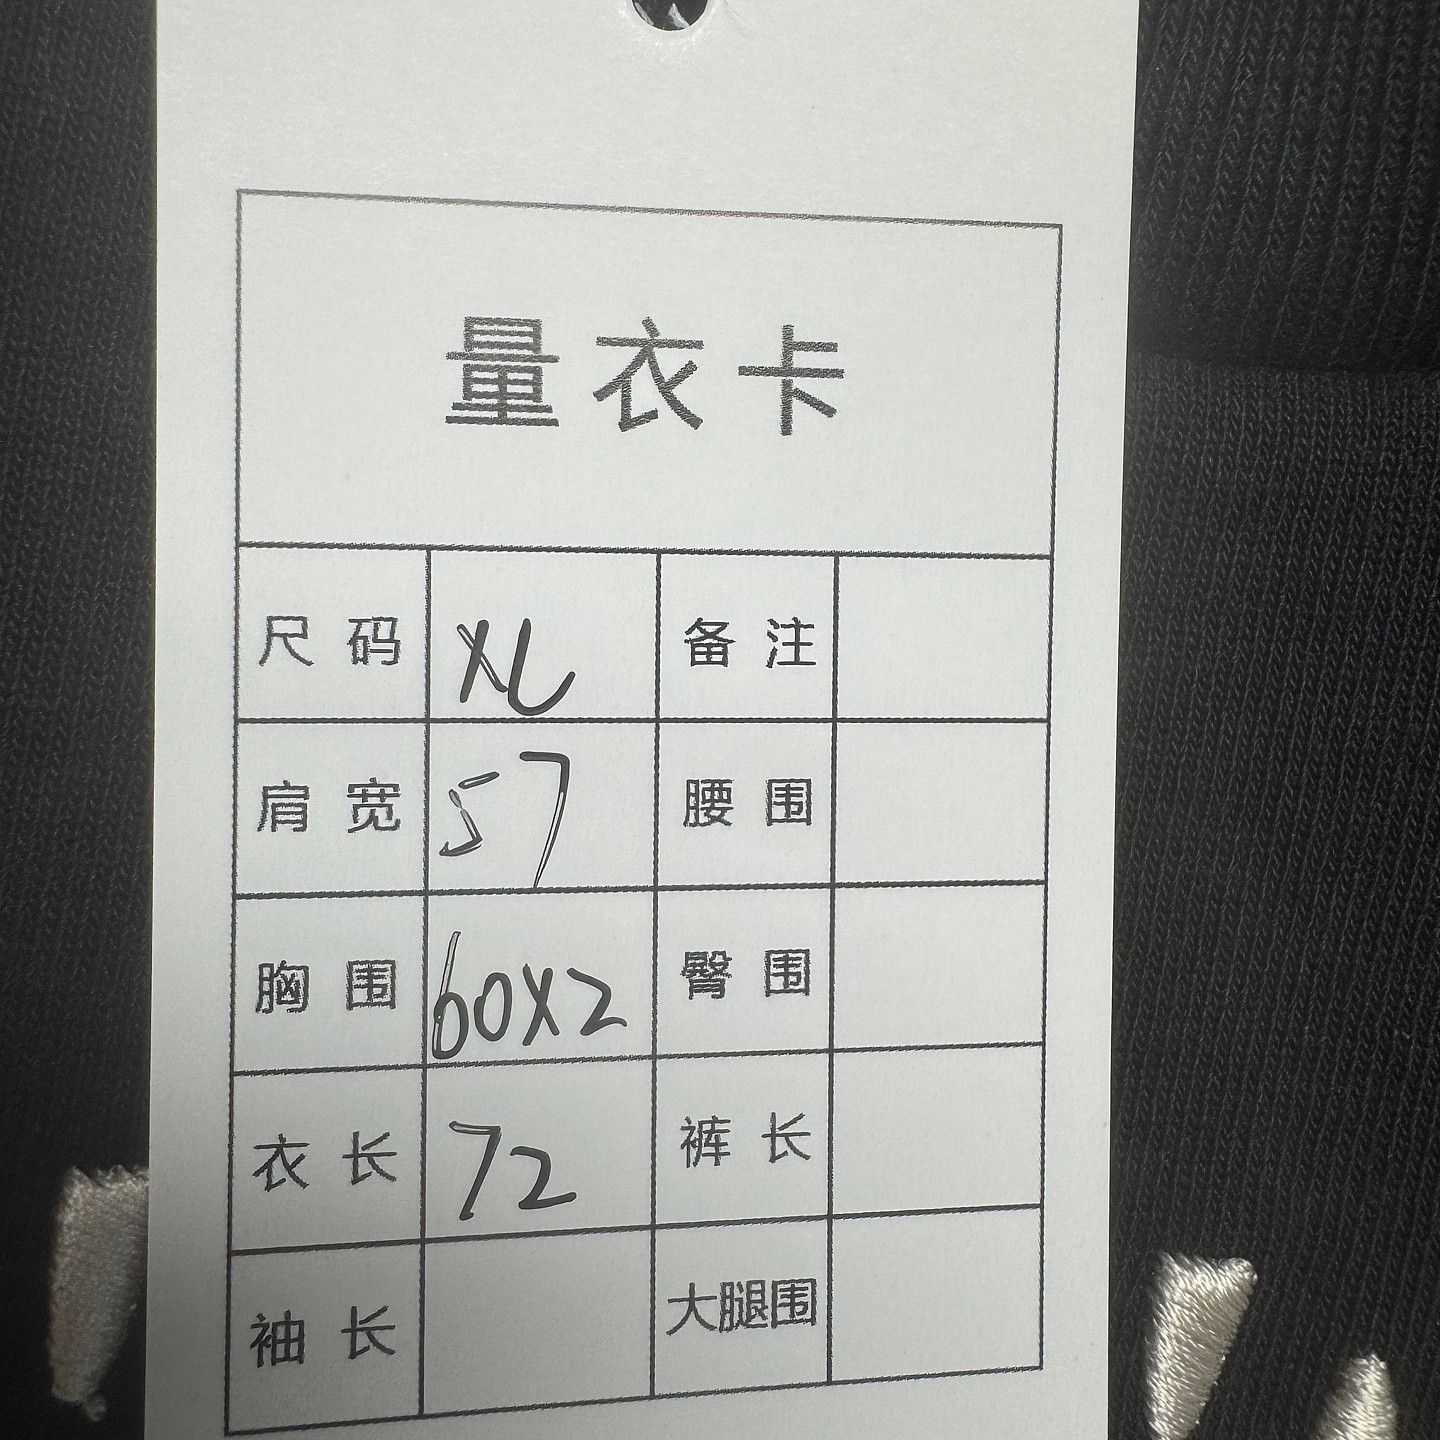 量衣卡
尺码 XL 备注
肩宽 57 腰围
胸围 60X2 臀围
衣长 72 裤长
袖长 大腿围